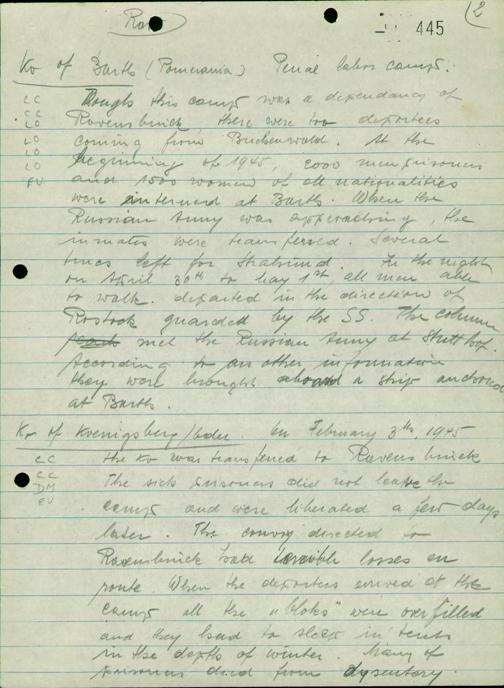 445
2
Ko of Barth (Pomerania) Penal labor camp.
CC Though this camp was a dependancy of
CC LO Ravensbrück, there were too deportees
LO coming from Buchenwald. At the
LO beginning of 1945, 2000 men prisoners
EV and 1500 women of all nationalities
were interned at Barth. When the
Russian Army was approaching, the
inmates were transferred. Several
left for Stralsund. In the night
on April 30th to May 1st, all men able
to walk departed in the direction of
Rostock guarded by the SS. The column
met the Russian Army at
According to an other information
they were brought aboard a ship anchored
at Barth.
Ko of Koenigsberg/Oder. On February 3th, 1945
CC the Ko was transferred to Ravensbrück
CC The sick prisoners did not leave the
DM EV camp and were liberated a few days
later. The convoy directed to
Ravensbrück had terrible losses en
route. When the deportees arrived at the
camp all the "bloks" were overfilled
and they had to sleep in tents
in the depth of winter. Many of
prisoners died from dysentery.